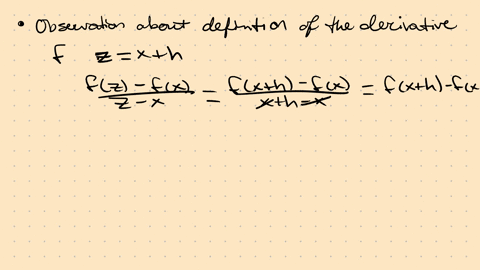 • Observation about definition of the derivative
f z = x+h
f(z) - f(x) / z - x = f(x+h) - f(x) / x+h-x = f(x+h) - f(x